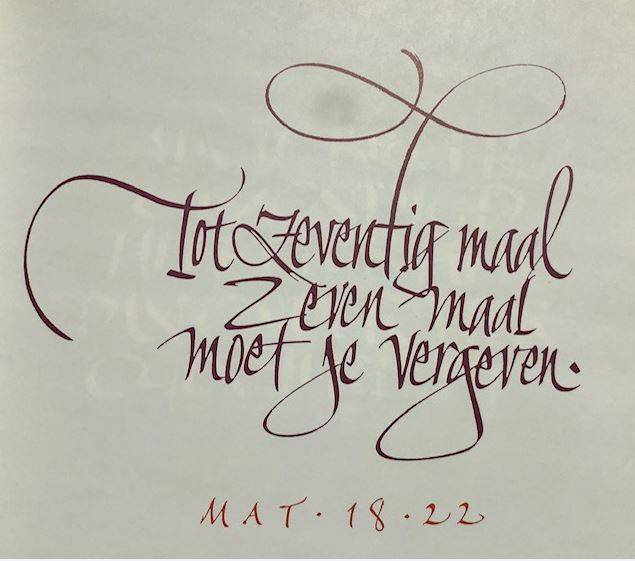 Tot zeventig maal
zeven maal
moet je vergeven.
MAT · 18 · 22